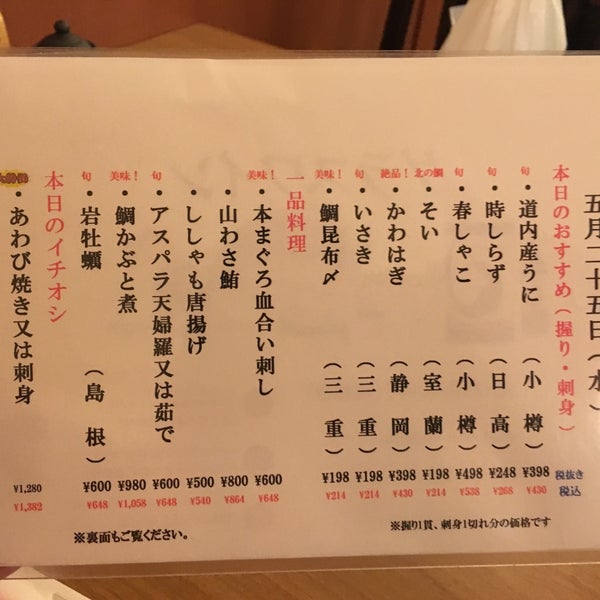 五月二十五日(水)
本日のおすすめ(握り・刺身) 税抜き 税込
旬 ・道内産うに (小樽) ¥398 ¥430
旬 ・時しらず (日高) ¥248 ¥268
旬 ・春しゃこ (小樽) ¥498 ¥538
北の鯛 ・そい (室蘭) ¥198 ¥214
絶品! ・かわはぎ (静岡) ¥398 ¥430
旬 ・いさき (三重) ¥198 ¥214
美味! ・鯛昆布〆 (三重) ¥198 ¥214
※握り1貫、刺身1切れ分の価格です
一品料理
美味! ・本まぐろ血合い刺し ¥600 ¥648
・山わさ鮪 ¥800 ¥864
・ししゃも唐揚げ ¥500 ¥540
旬 ・アスパラ天婦羅又は茹で ¥600 ¥648
美味! ・鯛かぶと煮 ¥980 ¥1,058
旬 ・岩牡蠣 (島根) ¥600 ¥648
本日のイチオシ
・あわび焼き又は刺身 ¥1,280 ¥1,382
※裏面もご覧ください。